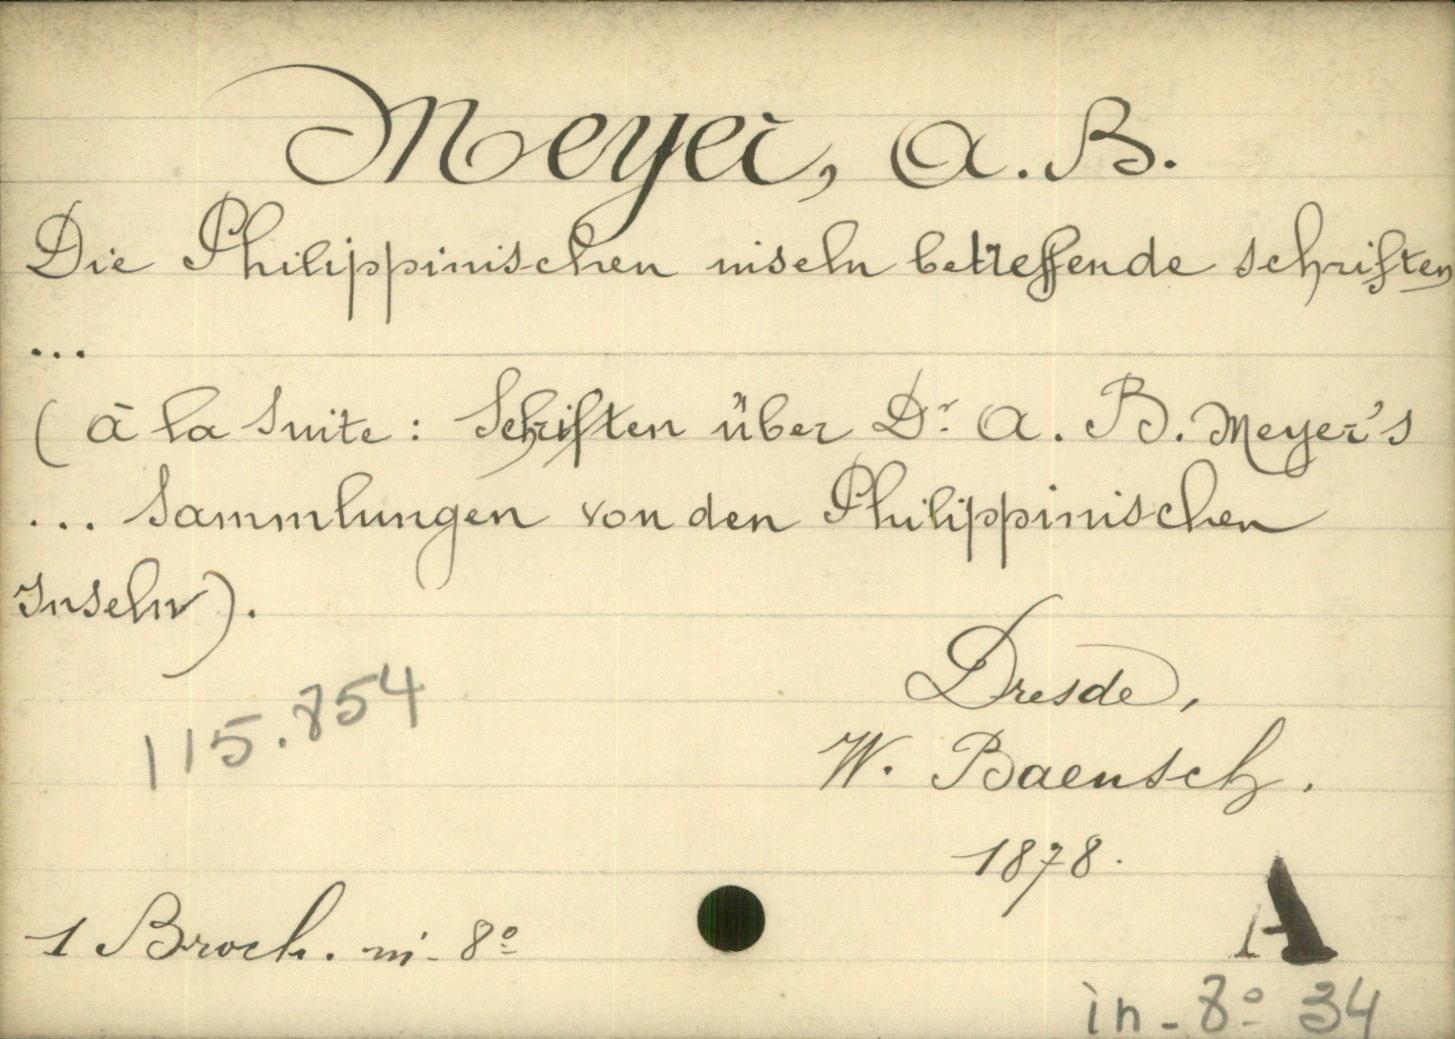 Meyer, A. B.
Die Philippinischen inseln betreffende schriften
...
(à la suite : Schriften über Dr. A. B. Meyer's
... Sammlungen von den Philippinischen
Inseln).
115.854
Dresde,
W. Baensch.
1878.
1 Broch. in-8º
A
in-8º 34